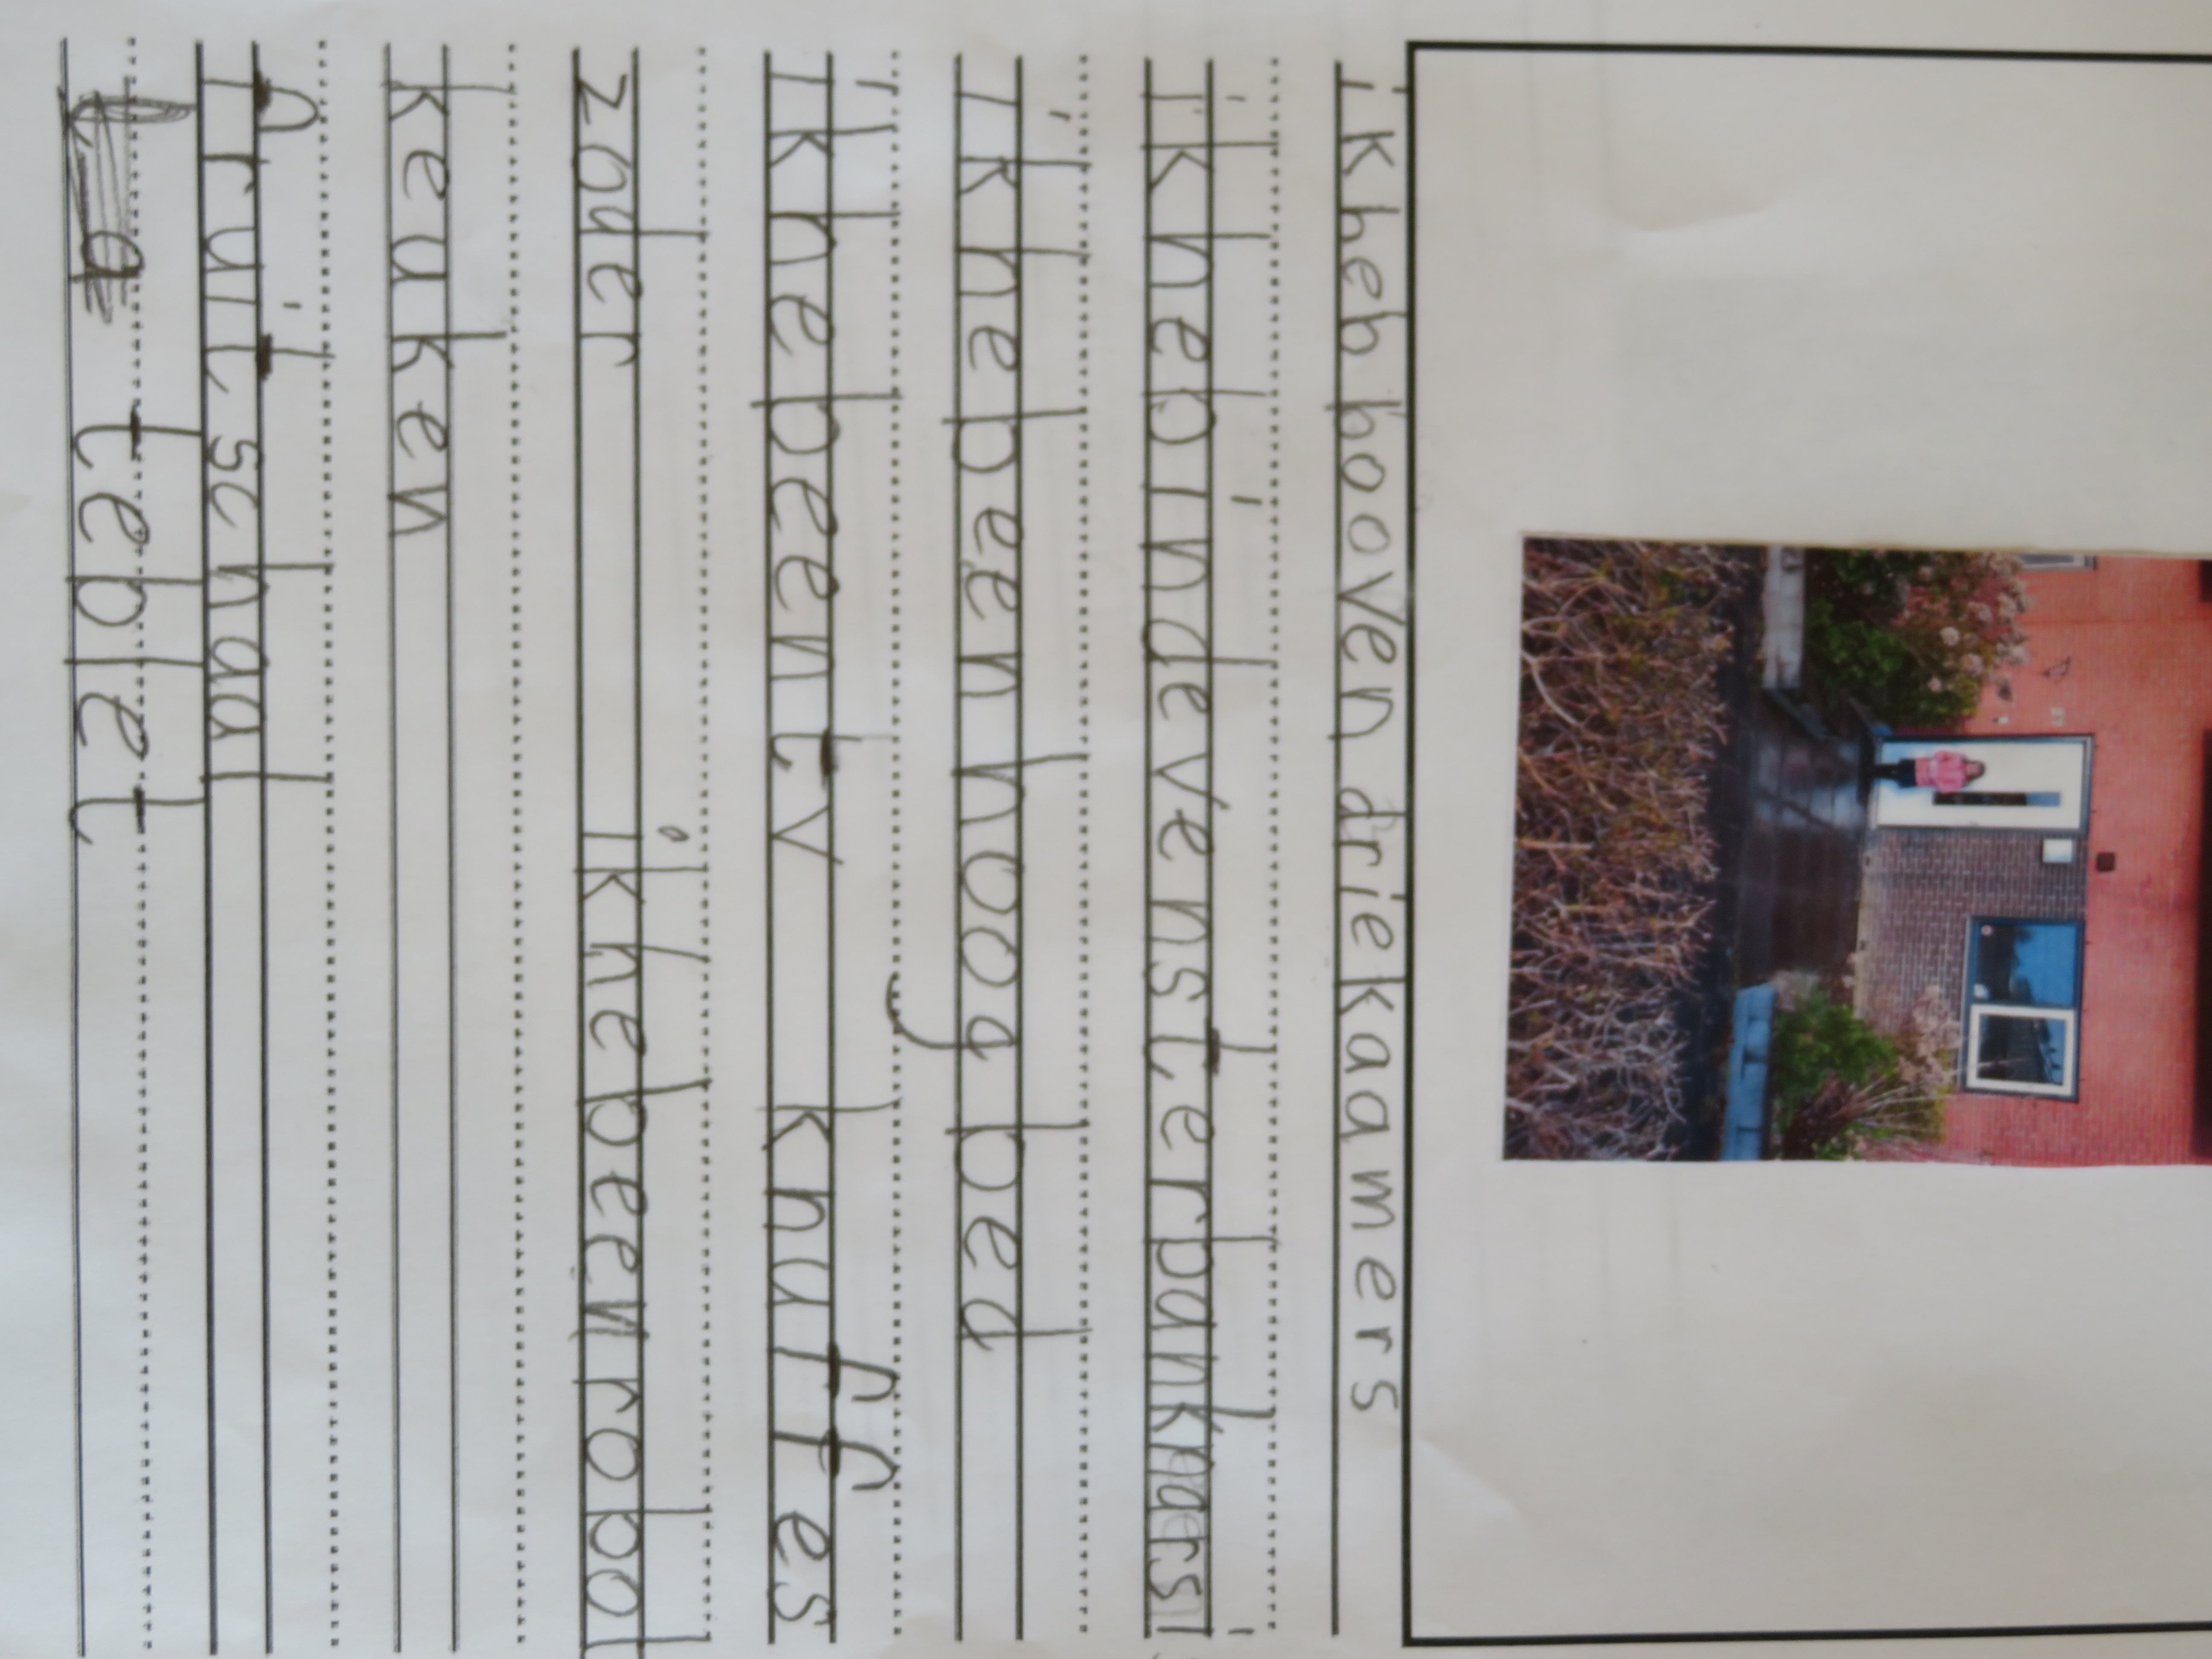 ik heb booven driekaamers
ik heb in de vensterbank
ik heb een hoog bed
ik heb een tv knuffes
zoder ik heb een robot
keuken
fruitschal
teblet